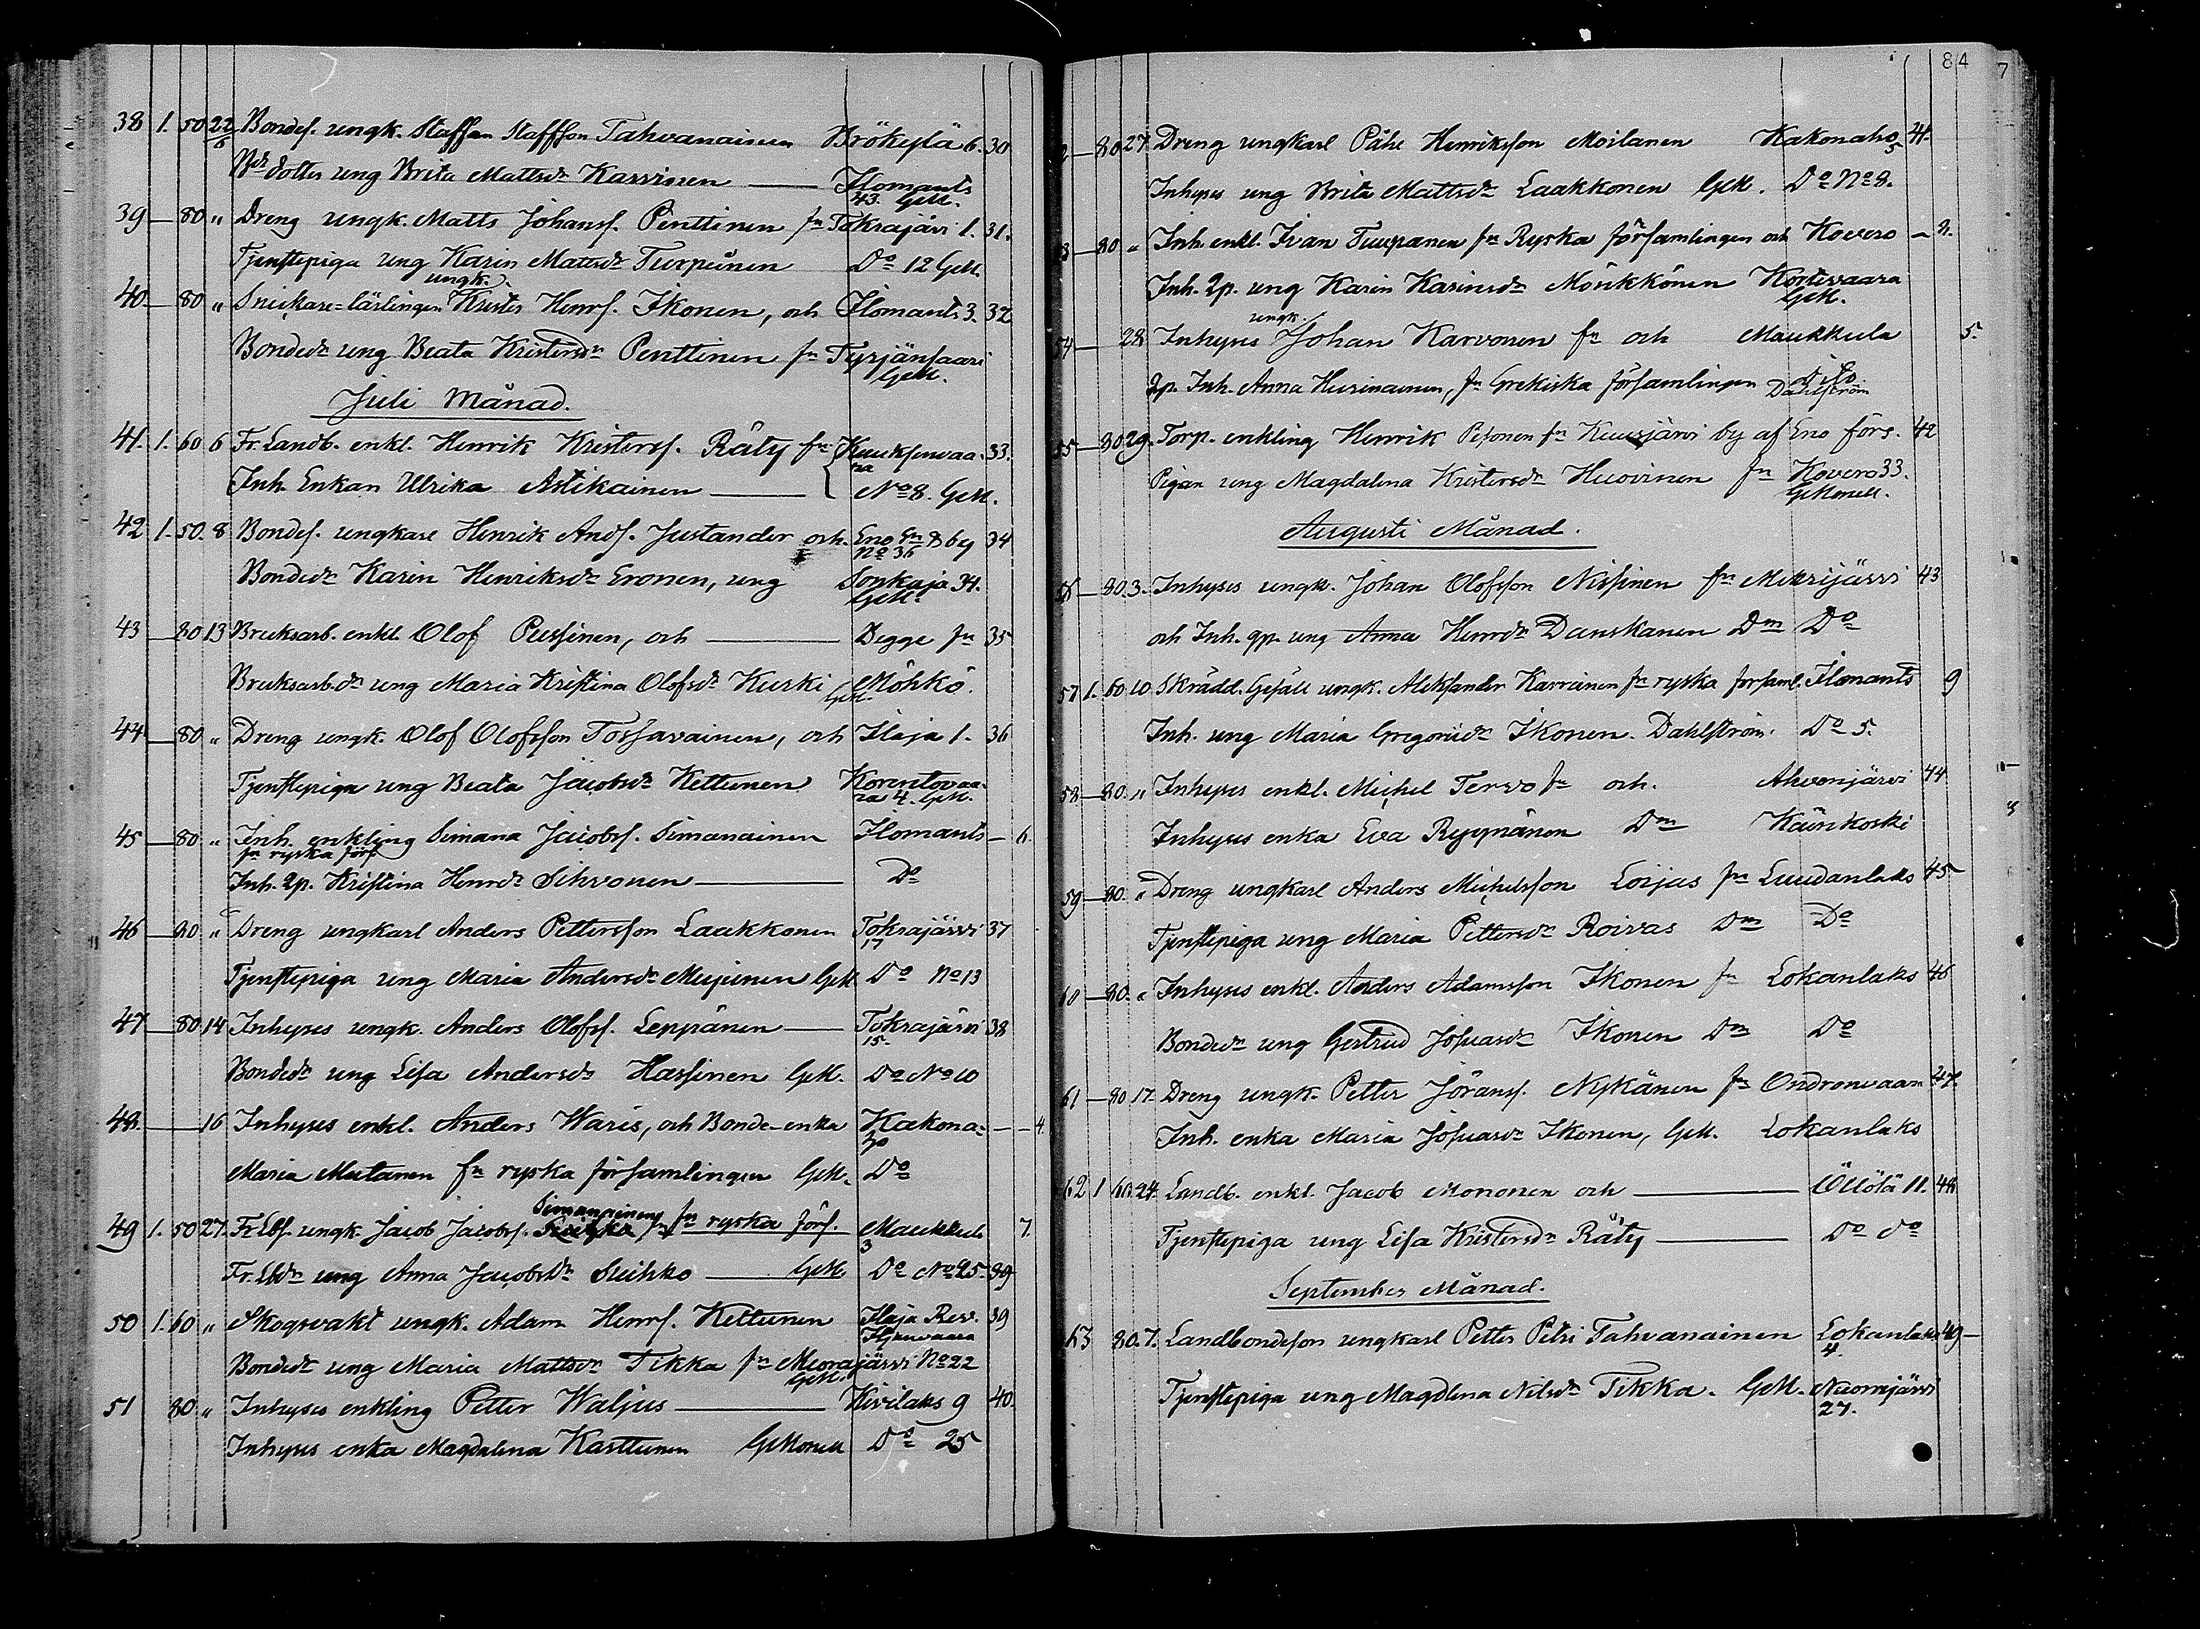 38 1. 50 22/6 Bondes. ungk. Staffan Staffsson Tahvanainen Brökylä 6. 30
dotter ung Brita Mattsdr Karvinen — Ilomants 43. GeM.
39 — 80 " Dreng ungk. Matts Johansf. Penttinen fn Tokrajärvi 1. 31.
Tjenstepiga ung Karin Mattsdr Turpeinen Do 12 GeM.
40 — 80 " Snickare-lärlingen ungk. Krister Henrs. Ikonen, och Ilomants 3. 32
Bondedr ung Beata Kristersdr Penttinen fn Tyrjänsaari GeM.
Juli Månad.
41. 1. 60 6 Fr. Landb. enkl. Henrik Kristersf. Räty fn Kuuksenvaara 33.
Inh. Enkan Ulrika Astikainen — No 8. GeM.
42 1. 50. 8 Bondes. ungkarl Henrik Ands. Justander och Eno No 36 34
Bondedr Karin Henriksdr Eronen, ung Sonkaja 34. GeM.
43 — 80 13 Bruksarb. enkl. Olof Pussinen, och — Begge fn 35
Bruksarb.dr ung Maria Kristina Olofsdr Kurki GeM. Möhkö.
44 — 80 " Dreng ungk. Olof Olofsson Tossavainen, och Ilaja 1. 36
Tjenstepiga ung Beata Jacobsdr Kettunen Korentovaara 4. GeM.
45 — 80 " Inh. enkling Simana Jacobsf. Simanainen Ilomants — 6.
fn ryska förs
Inh. 2p. Kristina Henrdr Sihvonen — Do
46 — 80 " Dreng ungkarl Anders Pettersson Laakkonen Tokrajärvi 17 37
Tjenstepiga ung Maria Andersdr Mujunen GeM Do No 13
47 — 80 14 Inhyses ungk. Anders Olofsf. Leppänen — Tokrajärvi 15. 38
Bondedr ung Lisa Andersdr Hassinen GeM. Do No 10
48. — 16 Inhyses enkl. Anders Waris, och Bonde-enka Kakona- — 4.
Maria Mutanen fn ryska församlingen GeM. Do
49 1. 50 27. Fr. Lbs. ungk. Jacob Jacobsf. Simanainen fn ryska förs. Maukkula 3 7.
Fr. Lbdr ung Anna Jacobsdr Sivhko — GeM Do No 25. 39
50 1. 60 " Skogsvakt ungk. Adam Henrs. Kettunen Ilaja Rev. 39
Bondedr ung Maria Mattsdr Tikka fn Meorajärvi No 22 GeM.
51 80 " Inhyses enkling Petter Waljus — Kivilaks 9 40.
Inhyses enka Magdalena Karttunen GeMonell Do 25
84 7
2 — 80 27 Dreng ungkarl Påhl Henriksson Moilanen Kakonaho 5 41.
Inhyses ung Brita Mattsdr Laakkonen GeM. Do No 8.
3 — 80 " Inh. enkl. Ivan Tuupanen fn Ryska församlingen och Kovero — 8.
Inh. 2p. ung Karin Karinsdr Mönkkönen Kortevaara GeM.
54 — 28 Inhyses ungk. Johan Karvonen fn och Maukkula 5.
2p. Inh. Anna Hurinainen, fn Grekiska församlingen Dito Dahlström
55 — 80 29. Torp. enkling Henrik Pesonen fn Kuusjärvi by af Eno förs. 42
Pigan ung Magdalena Kristersdr Huovinen fn Kovero 33. GeMonell.
Augusti Månad.
56 — 80. 3. Inhyses ungk. Johan Olofsson Nissinen fn Mekrijärvi 43
och Inh. qp. ung Anna Henrdr Danskanen Dm Do
57 1. 60. 10. Skrädd. Gesäll ungk. Aleksander Karvinen fn ryska forsaml. Ilomants 9
Inh. ung Maria Gregorisdr Ikonen. Dahlström. Do 5.
58 — 80. " Inhyses enkl. Michel Tervo fn och. Ahvenjärvi 44
Inhyses enka Eva Ryynänen Dm Känkoski
59 — 80. " Dreng ungkarl Anders Michelsson Loijas fn Luudanlaks 45
Tjenstepiga ung Maria Pettersdr Roivas Dm Do
60 — 80. " Inhyses enkl. Anders Adamsson Ikonen fn Lokanlaks 46
Bondedr ung Gertrud Josuasdr Ikonen Dm Do
61 — 80 17. Dreng ungk. Petter Jöransf. Nykänen fn Ondronvaara 47.
Inh. enka Maria Josuasdr Ikonen, GeM. Lokanlaks
62 1 60. 24. Landb. enkl. Jacob Mononen och — Öllölä 11. 48
Tjenstepiga ung Lisa Kristersdr Räty — Do do
September Månad.
63 80. 7. Landbondeson ungkarl Petter Petri Tahvanainen Lokanlaks 4. 49 —
Tjenstepiga ung Magdlena Nilsdr Tikka. GeM. Nuorajärvi 27.